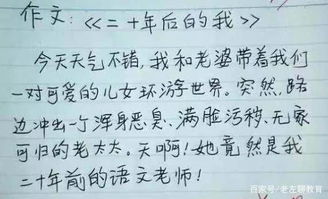 作文:《二十年后的我》
今天天气不错,我和老婆带着我们
一对可爱的儿女环游世界。突然,路
边冲出一个浑身恶臭、满脸污秽、无家
可归的老太太。天啊!她竟然是我
二十年前的语文老师!
百家号/老左聊教育